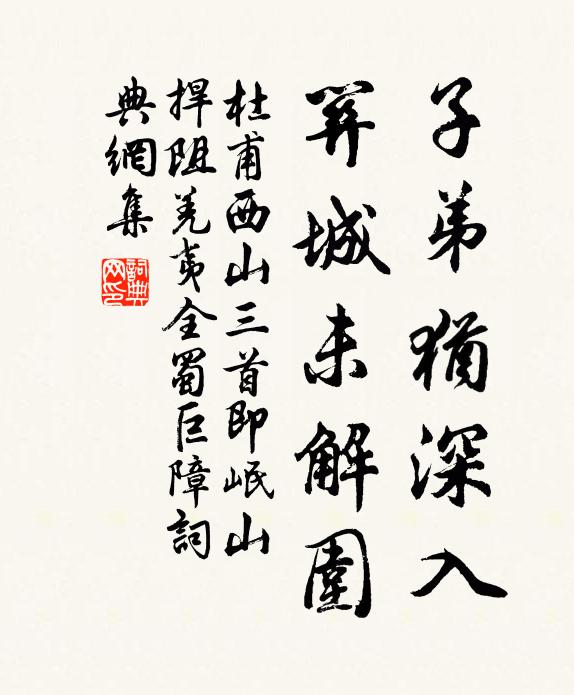 子弟猶深入
關城未解圍
杜甫西山三首即岷山
捍阻羌夷全蜀巨障詞
典網集
詞典
网印